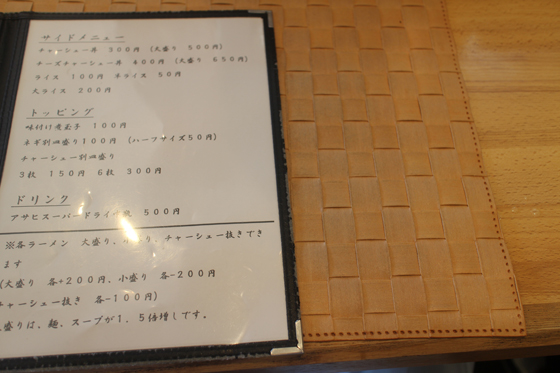 サイドメニュー
チャーシュー丼 300円 (大盛り 500円)
チーズチャーシュー丼 400円 (大盛り 650円)
ライス 100円 半ライス 50円
大ライス 200円
トッピング
味付け煮玉子 100円
ネギ別皿盛り100円 (ハーフサイズ50円)
チャーシュー別皿盛り
3枚 150円 6枚 300円
ドリンク
アサヒスーパードライ 500円
※各ラーメン 大盛り、 チャーシュー抜きでき
ます
(大盛り 各+200円、小盛り 各-200円
チャーシュー抜き 各-100円)
盛りは、麺、スープが1.5倍増しです。